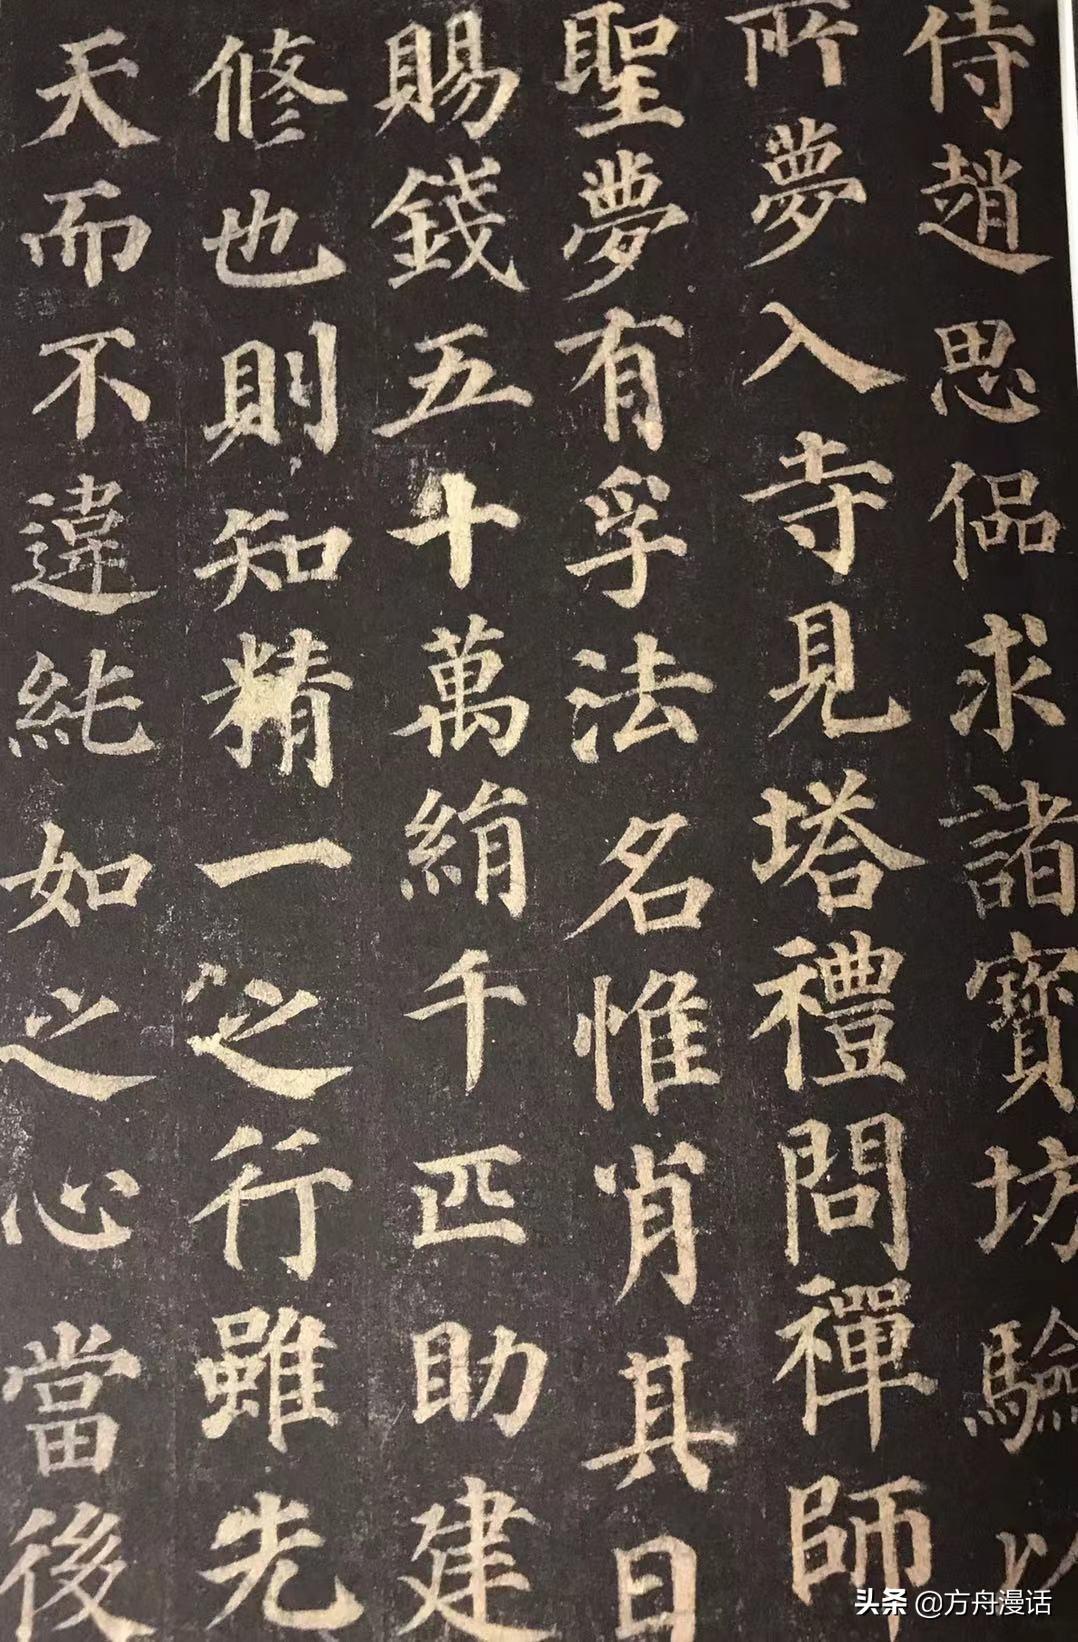 侍趙思偘求諸寶坊驗以
所夢入寺見塔禮問禪師
聖夢有孚法名惟肖其日
賜錢五十萬絹千匹助建
修也則知精一之行雖先
天而不違純如之心當後
头条 @方舟漫话